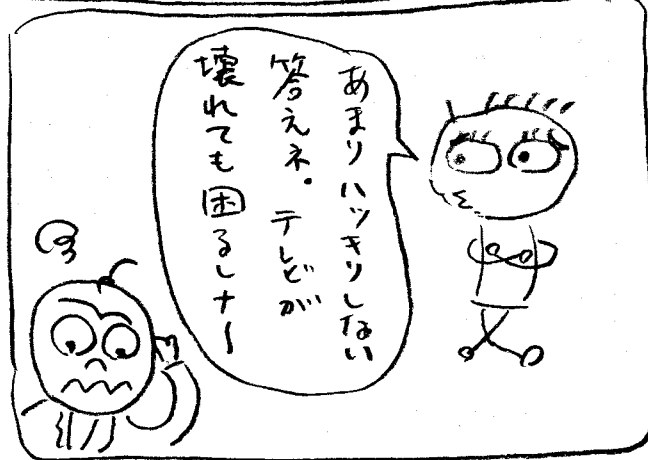 あまりハッキリしない
答えネ。テレビが
壊れても困るしナ〜